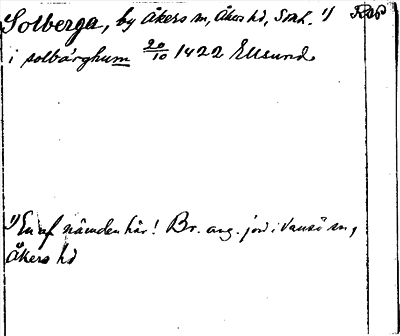 Solberga, by Åkers sn, Åkers hd, Söd. 1) RAP
i solbärghum 20/10 1422 Ellsund.
1) En af nämnden här! Br. ang. jord i Vansö sn,
Åkers hd